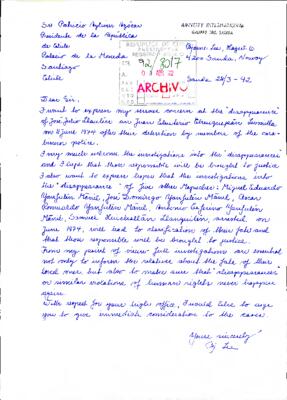 Sr Patricio Aylwin Azócar
Presidente de la República
de Chile
Palacio de la Moneda
Santiago
Chile
AMNESTY INTERNATIONAL
4200 Sauda, Norway
92/3017
ARCHIVO
Sauda, 28/3-92
Dear Sir,
I want to express my serious concern at the "disappearance"
of José Julio Llaulén and Juan Eleuterio Cheuquepán Levimilla
on 11 June 1974 after their detention by members of the cara-
binero police.
I very much welcome the investigations into the disappearances
and I hope that those responsible will be brought to justice.
I also want to express hopes that the investigations into
the "disappearance" of five other Mapuches: Miguel Eduardo
Yaufulén Mañil, José Domingo Yaufulén Mañil, Oscar
Romualdo Yaufulén Mañil, Antonio Ceferino Yaufulén
Mañil, Samuel Huichallán Llanquilén, arrested on
June 1974, will lead to clarification of their fate and
that those responsible will be brought to justice.
From my point of view full investigations are essential
not only to inform the relatives about the fate of their
loved ones but also to make sure that "disappearances"
or similar violations of human rights never happen
again.
With respect for your high office, I would like to urge
you to give immediate consideration to the cases.
Yours sincerely